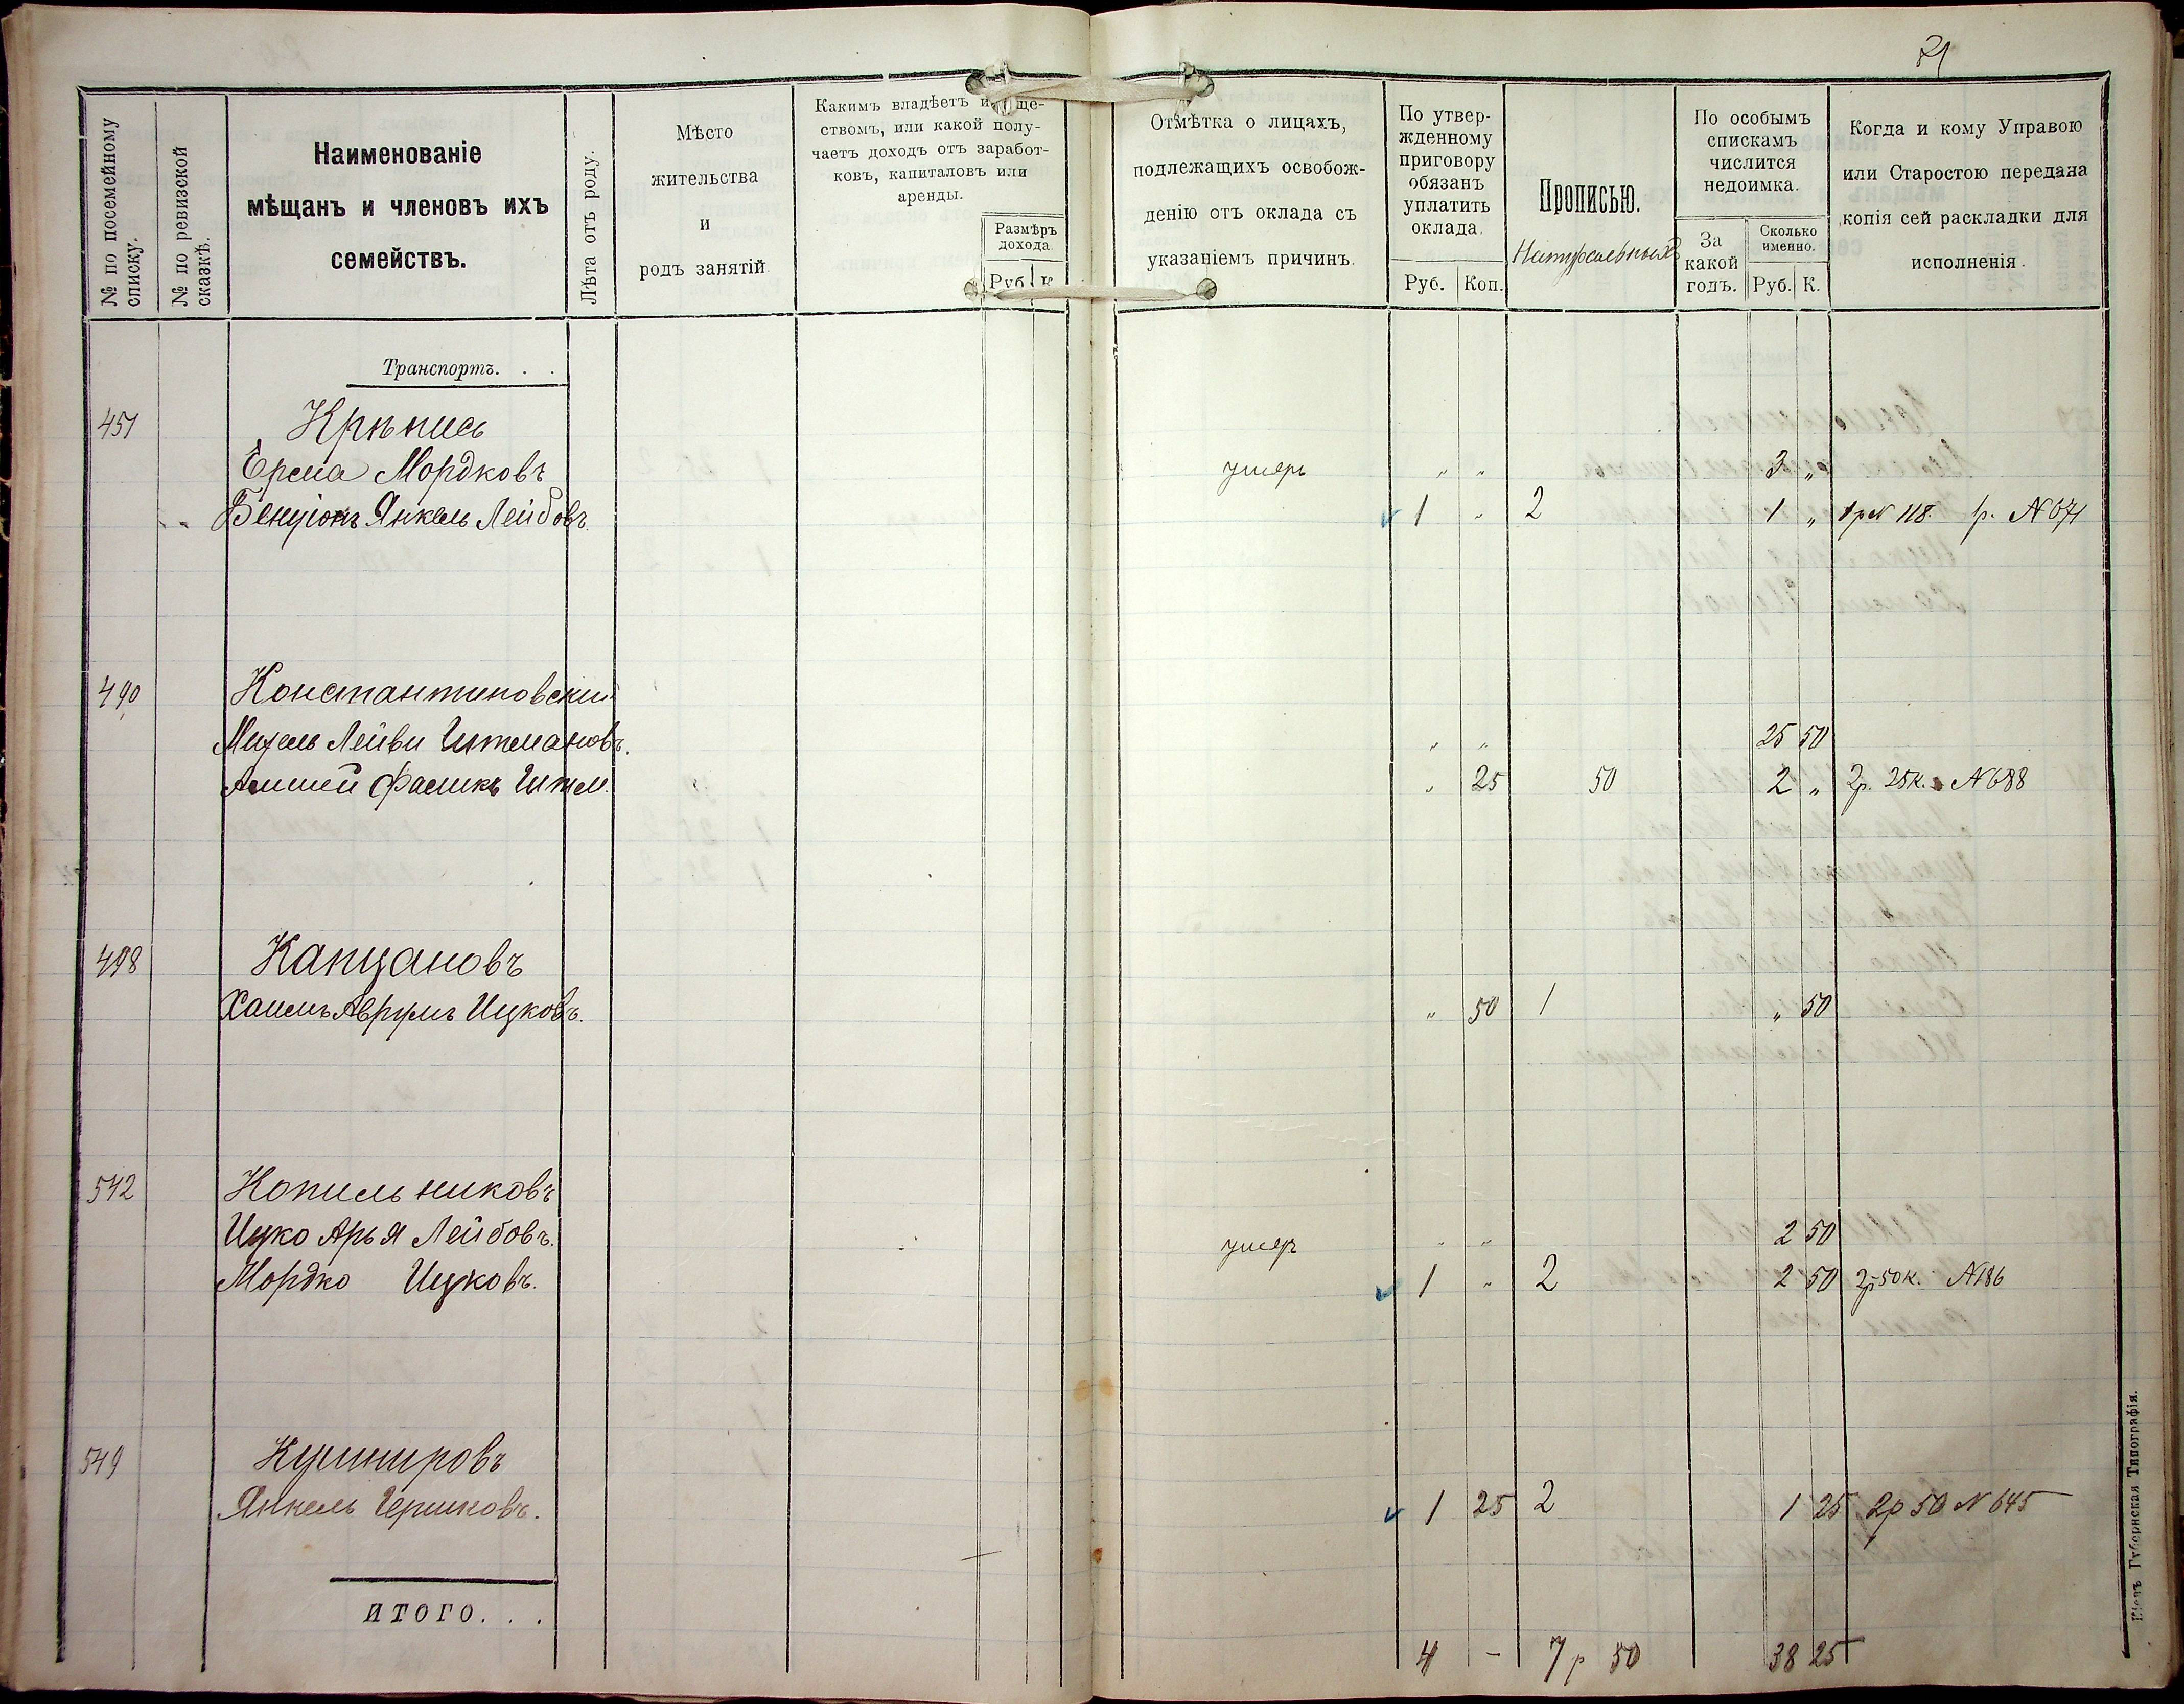 21
№ по посемейному списку.
№ по ревизской сказкѣ.
Наименованіе мѣщанъ и членовъ ихъ семействъ.
Лѣта отъ роду.
Мѣсто жительства и родъ занятій.
Какимъ владѣетъ имуще-
ствомъ, или какой полу-
чаетъ доходъ отъ заработ-
ковъ, капиталовъ или
аренды.
Размѣръ дохода.
Руб. К.
Отмѣтка о лицахъ,
подлежащихъ освобож-
денію отъ оклада съ
указаніемъ причинъ.
По утвер-
жденному
приговору
обязанъ
уплатить
оклада.
Руб. Коп.
Прописью.
Натуральныхъ
По особымъ
спискамъ
числится
недоимка.
За какой годъ.
Сколько именно.
Руб. К.
Когда и кому Управою
или Старостою передана
копія сей раскладки для
исполненія.
Транспортъ. . .
451 Крѣпись
Ерема Мордковъ умеръ " " 3 "
Бенціонъ Янкель Лейбовъ. 1 " 2 1 " 1 р № 118. 1р. № 671
490 Константиновскій
Михель Лейви Итмановъ. " " 25 50
Амшей Фаликъ Итм. " 25 50 2 " 2р. 25к. № 688
498 Капцановъ
Хаимъ Аврумъ Ицковъ. " 50 1 " 50
542 Копильниковъ
Ицко Арья Лейбовъ. умеръ " " 2 50
Мордко Ицковъ. 1 " 2 2 50 2р 50к. № 186
549 Кушнировъ
Янкель Гершковъ. 1 25 2 1 25 2р 50 № 645
ИТОГО. . .
4 - 7 р 50 38 25
Кіевъ Губернская Типографія.